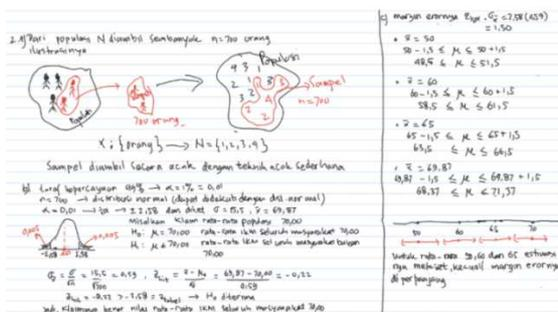 2. a) Dari populasi N diambil sebanyak n=700 orang
ilustrasinya
Populasi
Sampel
700 orang
Populasi
9 3 1
2 1 3 3
3 2 4
1 2 2
Sampel
n=700
X : {orang} → N = {1,2,3,4}
Sampel diambil secara acak dengan teknik acak sederhana
b) taraf kepercayaan 99% → α = 1% = 0,01
n = 700 → distribusi normal (dapat didekati dengan dist. normal)
α = 0,01 → ± 2,58 dan diket σ = 15,5 , x̄ = 69,87
Misalkan klaim rata-rata populasi 70,00
H₀: μ = 70,00 rata-rata IKM seluruh masyarakat 70,00
H₁: μ ≠ 70,00 rata-rata IKM seluruh masyarakat bukan
70,00
0,005
0,005
-2,58
2,58
= 15,5/√700 = 0,59 , = 69,87 - 70,00 / 0,59 = -0,22
= -0,22 > -2,58 = → H₀ diterima
Jadi, klaimnya benar nilai rata-rata IKM seluruh masyarakat 70,00
c) margin errornya = 2,58 (0,59)
= 1,50
• x̄ = 50
50 - 1,5 ≤ μ ≤ 50 + 1,5
48,5 ≤ μ ≤ 51,5
• x̄ = 60
60 - 1,5 ≤ μ ≤ 60 + 1,5
58,5 ≤ μ ≤ 61,5
• x̄ = 65
65 - 1,5 ≤ μ ≤ 65 + 1,5
63,5 ≤ μ ≤ 66,5
• x̄ = 69,87
69,87 - 1,5 ≤ μ ≤ 69,87 + 1,5
68,37 ≤ μ ≤ 71,37
50 60 65 70
Untuk rata-rata 50, 60 dan 65 estimasi
nya meleset, kecuali margin errornya
diperpanjang